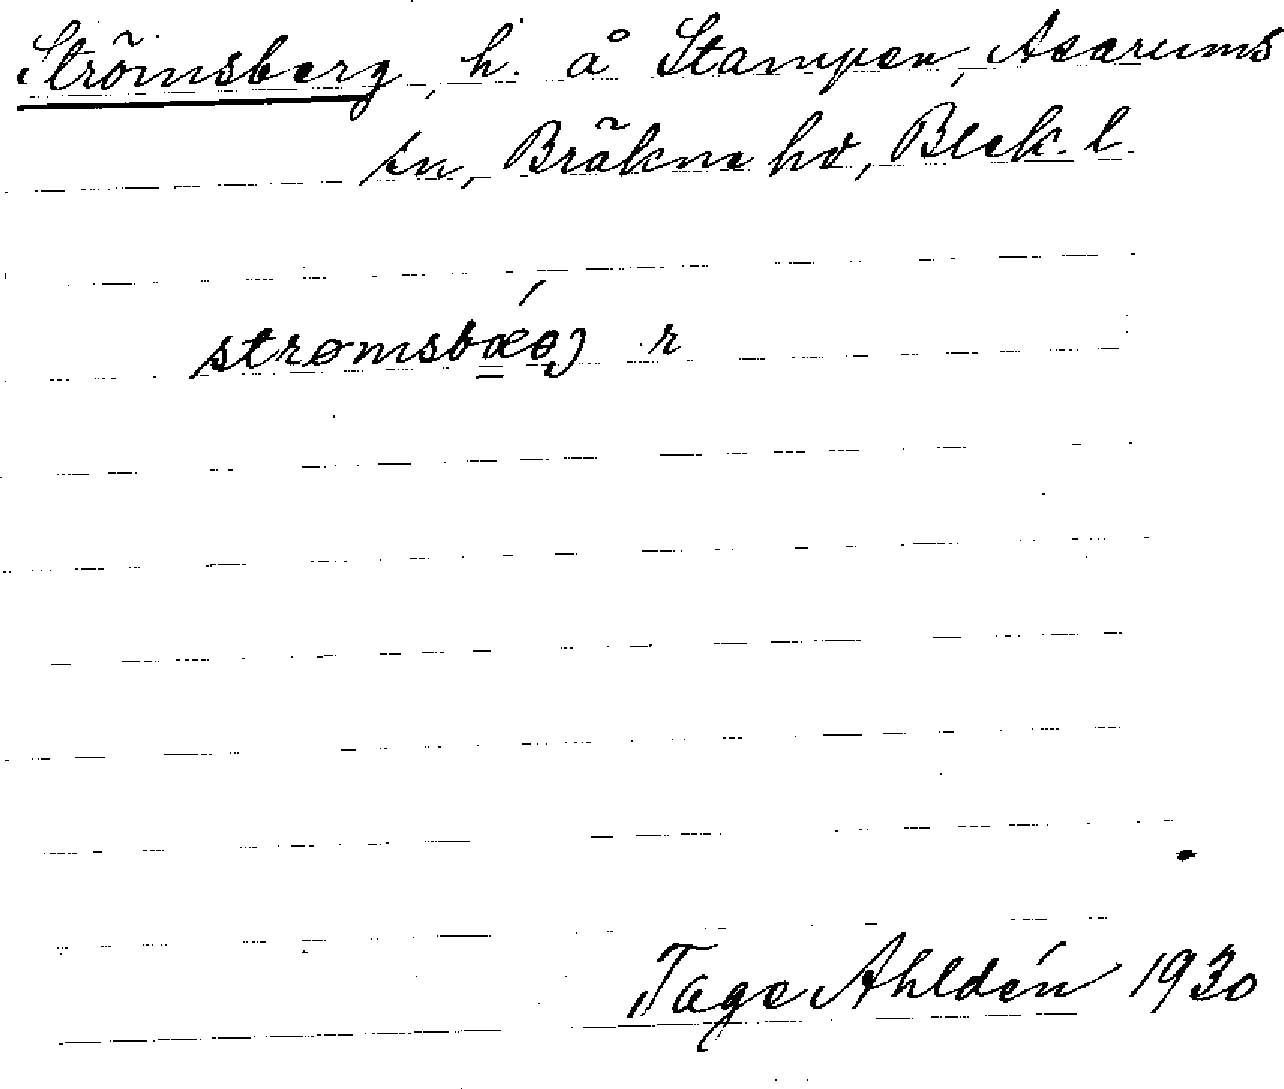 Strömsberg, h. å Stampen, Asarums
sn, Bräkne hd, Blek. l.
strømsbǽ̲ r
Tage Ahldén 1930